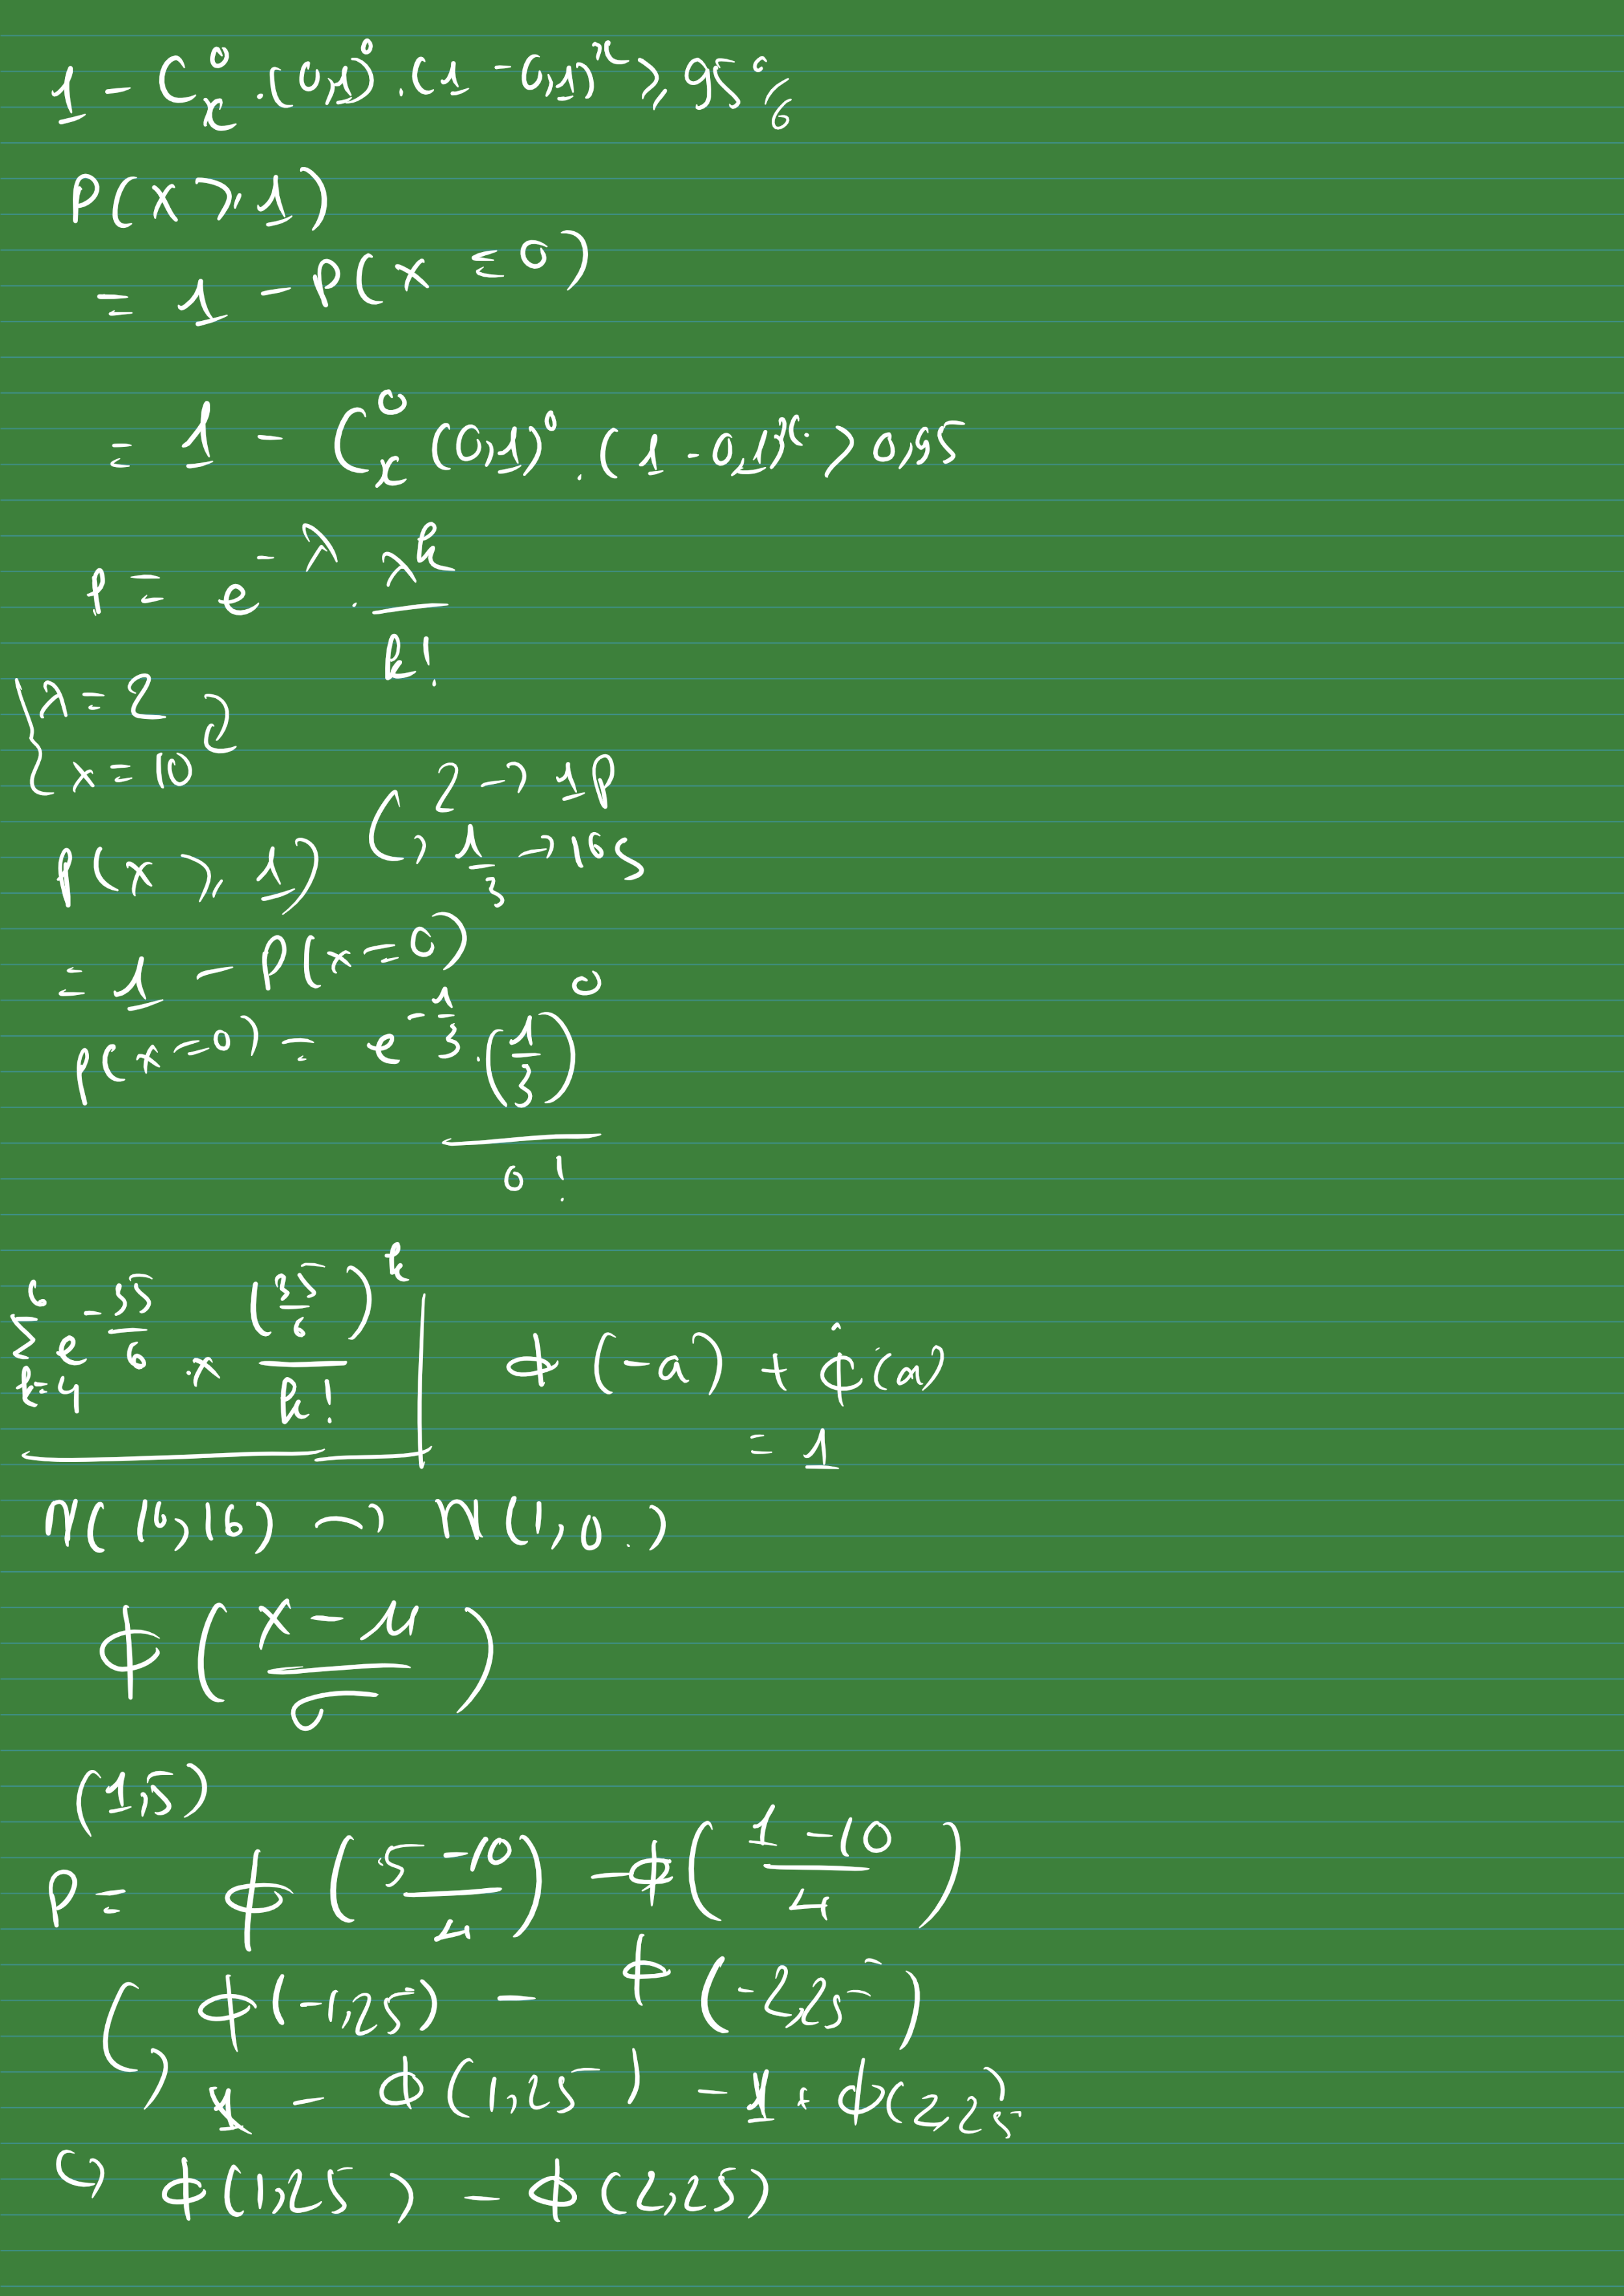 1 - C⁰ₓ . (0,1)⁰ . (1 - 0,1)ˣ ⩾ 95%
P(x ⩾ 1)
= 1 - P(x = 0)
= 1 - C⁰ₓ (0,1)⁰ . (1 - 0,1)ˣ ⩾ 0,95
P = e^(-λ) . λ^k / k!
{ λ = 2
x = 10
2 → 1P
1/3 → 10s
P(x ⩾ 1)
= 1 - P(x = 0)
P(x = 0) = e^(-1/3) . (1/3)⁰ / 0!
Σ k=4 6 e^(-35/6) . × (35/6)^k / k!
Φ(-a) + Φ(a)
= 1
N(16,16) → N(1,0.)
Φ((x - μ) / σ)
(1,5)
P = Φ((5 - 10) / 4) - Φ((1 - 10) / 4)
Φ(-1,25) - Φ(-2,25)
1 - Φ(1,25) - 1 + Φ(2,25)
Φ(1,25) - Φ(2,25)